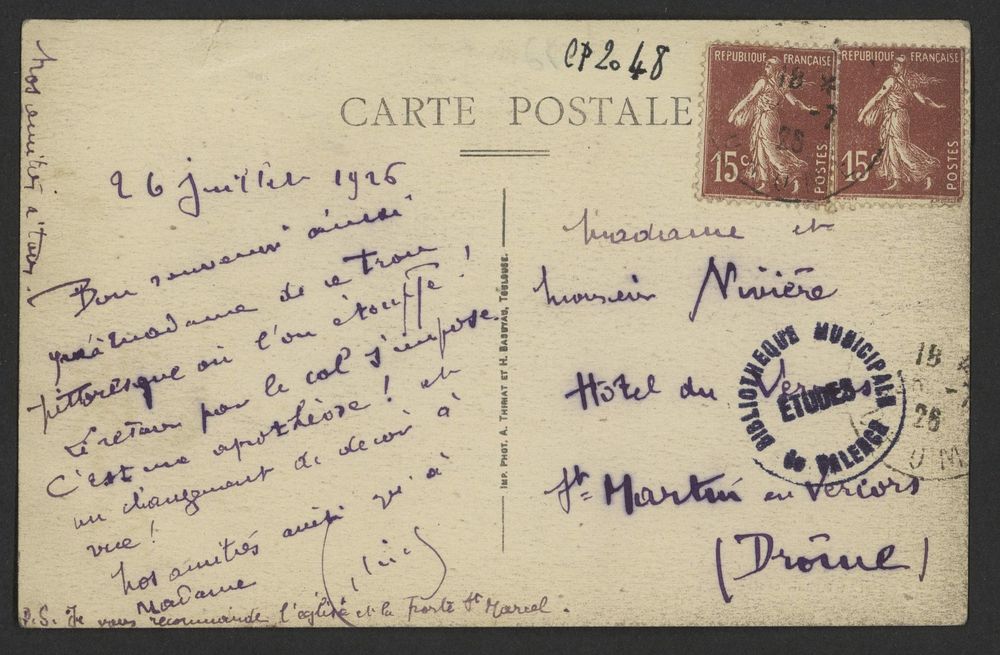 CP2048
CARTE POSTALE
REPUBLIQUE FRANÇAISE
15c POSTES
REPUBLIQUE FRANÇAISE
15c POSTES
18 *
-7
26
26 juillet 1926
Bon souvenir ainsi
qu'à madame de ce trou
pittoresque où l'on étouffe !
Le retour par le col s'impose.
C'est une apothéose ! et
un changement de décor à
vue !
nos amitiés ainsi qu'à
Madame
P.S. Je vous recommande l'église et la porte St Marcel.
nos amitiés à tous.
IMP. PHOT. A. THIRIAT ET H. BASUYAU, TOULOUSE.
Madame et
monsieur Nivière
Hotel du Vercors
St Martin en Vercors
(Drôme)
BIBLIOTHEQUE MUNICIPALE
ÉTUDES
de VALENCE
18 *
-7
26